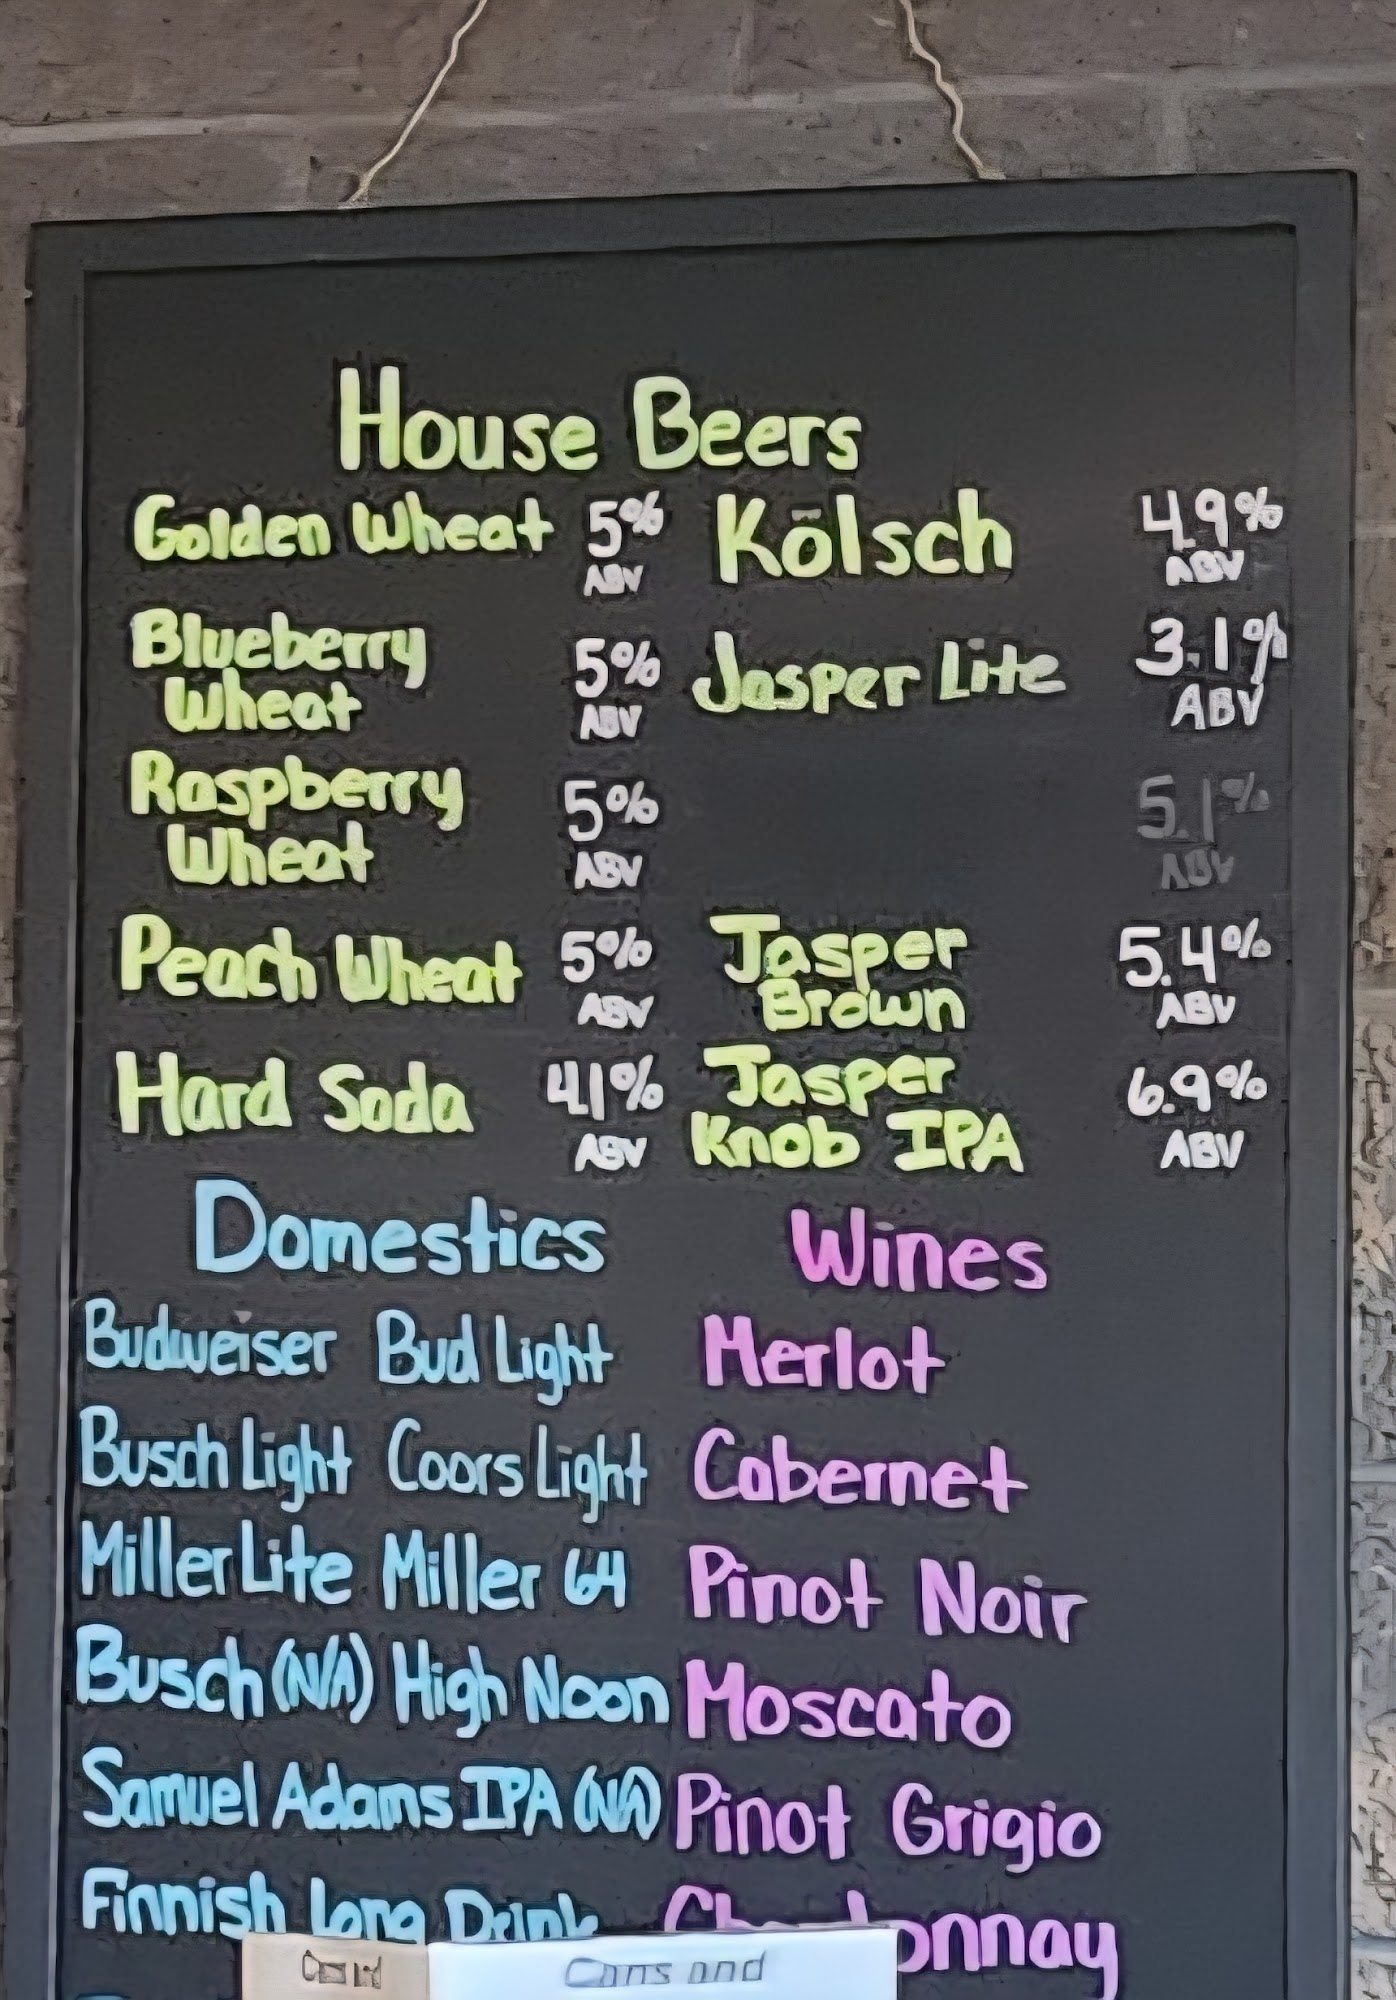 House Beers
Golden Wheat 5% ABV
Kölsch 4.9% ABV
Blueberry
Wheat 5% ABV
Jasper Lite 3.1% ABV
Raspberry
Wheat 5% ABV
5.1% ABV
Peach Wheat 5% ABV
Jasper
Brown 5.4% ABV
Hard Soda 4.1% ABV
Jasper
Knob IPA 6.9% ABV
Domestics
Budweiser Bud Light
Busch Light Coors Light
Miller Lite Miller 64
Busch (N/A) High Noon
Samuel Adams IPA (N/A)
Finnish Long Drink
Wines
Merlot
Cabernet
Pinot Noir
Moscato
Pinot Grigio
Chardonnay
Cans and